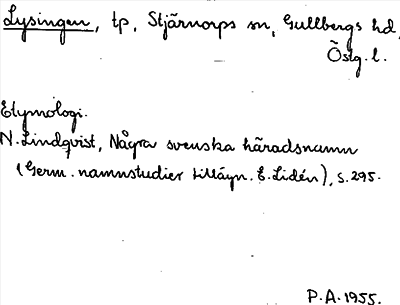 Lysingen, tp, Stjärnorps sn, Gullbergs hd,
Östg. l.
Etymologi.
N. Lindqvist, Några svenska häradsnamn
(Germ. namnstudier tillägn. E. Lidén), s. 295.
P. A. 1955.